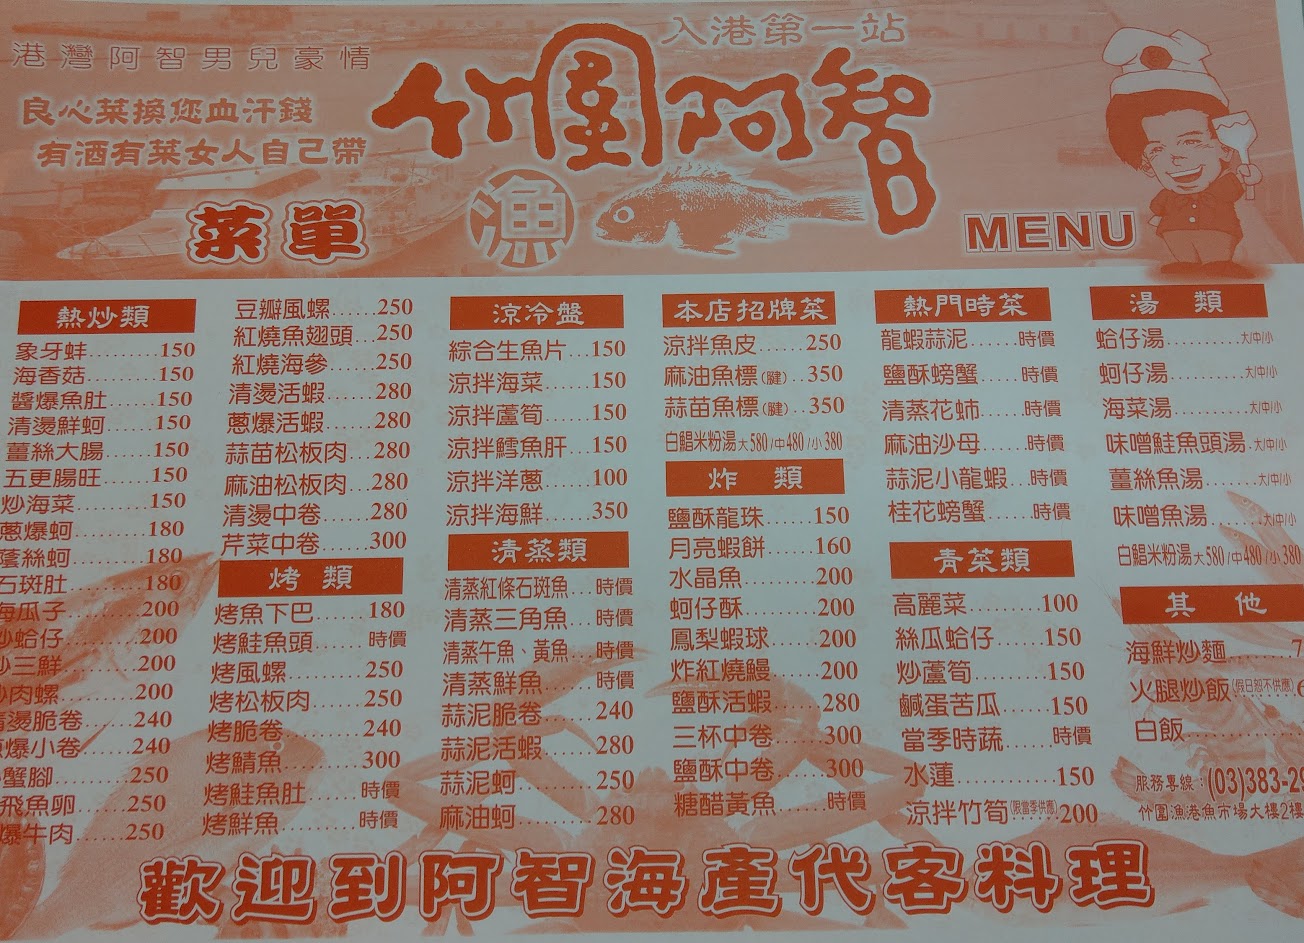 入港第一站
港灣阿智男兒豪情
竹圍阿智
良心菜換您血汗錢
有酒有菜女人自己帶
漁
菜單
MENU
熱炒類
象牙蚌.........150
海香菇.........150
醬爆魚肚........150
清燙鮮蚵........150
薑絲大腸........150
五更腸旺........150
炒海菜.........150
蔥爆蚵.........180
蔭絲蚵.........180
石斑肚.........180
海瓜子.........200
炒蛤仔.........200
炒三鮮.........200
炒肉螺.........200
清燙脆卷........240
蔥爆小卷........240
蟹腳..........250
飛魚卵.........250
爆牛肉.........250
豆瓣風螺........250
紅燒魚翅頭.......250
紅燒海參........250
清燙活蝦........280
蔥爆活蝦........280
蒜苗松板肉.......280
麻油松板肉.......280
清燙中卷........280
芹菜中卷........300
烤 類
烤魚下巴........180
烤鮭魚頭........時價
烤風螺.........250
烤松板肉........250
烤脆卷.........240
烤鯖魚.........300
烤鮭魚肚........時價
烤鮮魚.........時價
涼冷盤
綜合生魚片...150
涼拌海菜......150
涼拌蘆筍......150
涼拌鱈魚肝...150
涼拌洋蔥......100
涼拌海鮮......350
清蒸類
清蒸紅條石斑魚...時價
清蒸三角魚...時價
清蒸午魚、黃魚...時價
清蒸鮮魚......時價
蒜泥脆卷......240
蒜泥活蝦......280
蒜泥蚵.........250
麻油蚵.........280
本店招牌菜
涼拌魚皮......250
麻油魚標(腱)..350
蒜苗魚標(腱)..350
白鯧米粉湯大580/中480/小380
炸 類
鹽酥龍珠......150
月亮蝦餅......160
水晶魚.........200
蚵仔酥.........200
鳳梨蝦球......200
炸紅燒鰻......200
鹽酥活蝦......280
三杯中卷......300
鹽酥中卷......300
糖醋黃魚......時價
熱門時菜
龍蝦蒜泥......時價
鹽酥螃蟹......時價
清蒸花蛳......時價
麻油沙母......時價
蒜泥小龍蝦...時價
桂花螃蟹......時價
青菜類
高麗菜.........100
絲瓜蛤仔......150
炒蘆筍.........150
鹹蛋苦瓜......150
當季時蔬......時價
水蓮............150
涼拌竹筍(限當季供應)200
湯 類
蛤仔湯.........大/中/小
蚵仔湯.........大/中/小
海菜湯.........大/中/小
味噌鮭魚頭湯.大/中/小
薑絲魚湯......大/中/小
味噌魚湯......大/中/小
白鯧米粉湯大580/中480/小380
其 他
海鮮炒麵.........7
火腿炒飯(假日恕不供應)6
白飯...............
服務專線：(03)383-29
竹圍漁港魚市場大樓2樓
歡迎到阿智海產代客料理